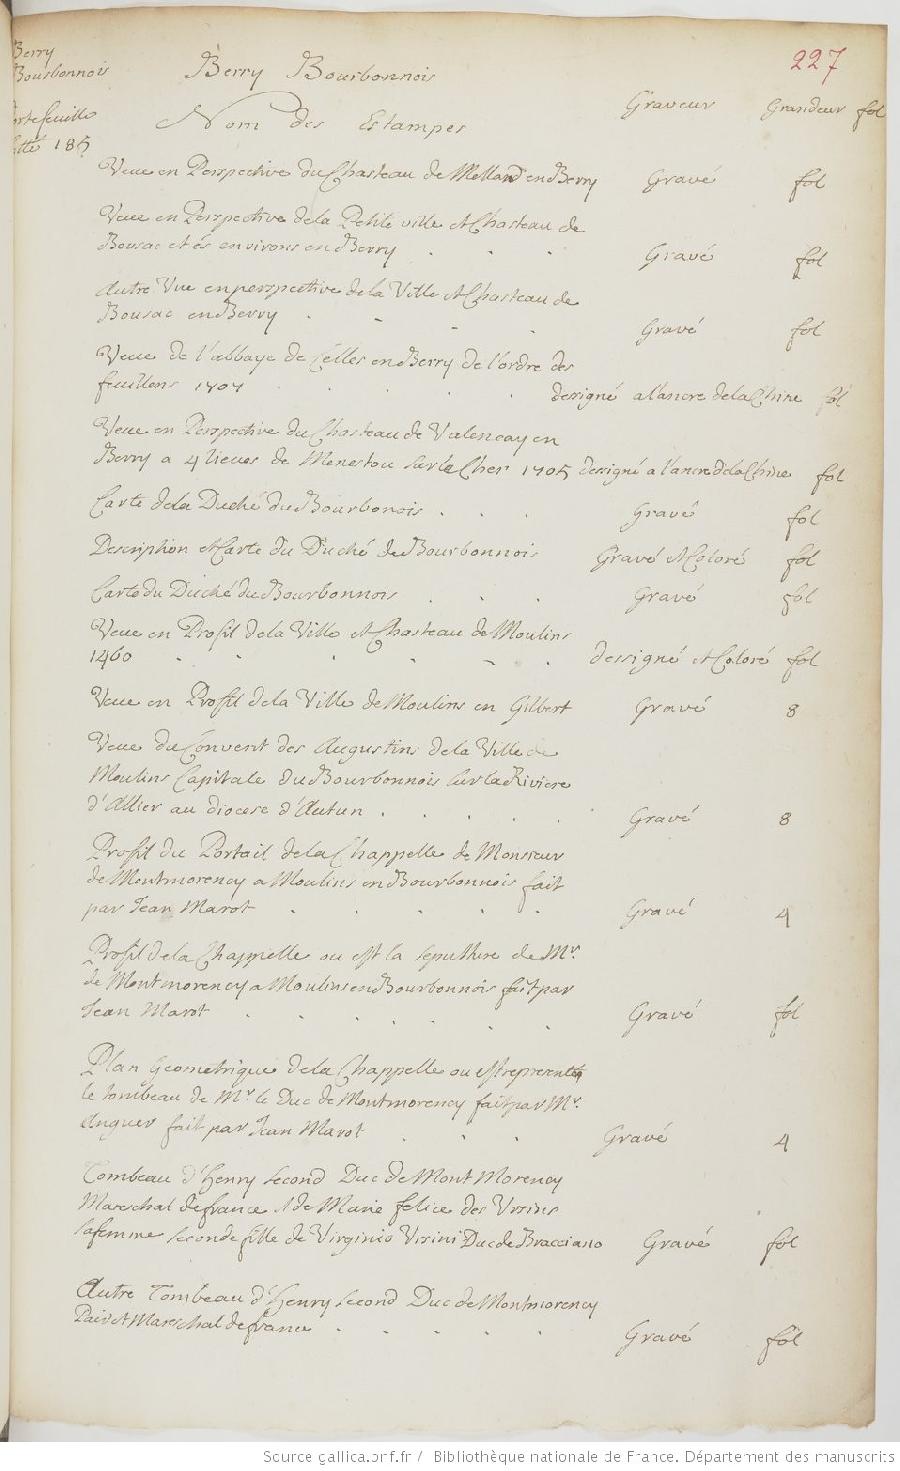 Berry
Bourbonnois
Berry Bourbonnois
227
Nom des Estampes
Graveur
Grandeur fol
Veue en Perspective du Chasteau de Melland en Berry Gravé fol
Veue en Perspective dela Petite ville et Chasteau de
Bousac et és environs en Berry Gravé fol
Autre Vue en perspective de la Ville et Chasteau de
Bousac en Berry Gravé fol
Veue de l'abbaye de Celles en Berry de l'ordre des
feuillens 1707 dessigné a l'ancre dela Chine fol
Veue en Perspective du Chasteau de Valencay en
Berry a 4 lieues de Menestou sur le Cher 1705 dessigné a l'ancre dela Chine fol
Carte dela Duché du Bourbonois Gravé fol
Description et Carte du Duché de Bourbonnois Gravé et Coloré fol
Carte du Duché du Bourbonnois Gravé fol
Veue en Profil dela Ville et Chasteau de Moulins
1460 dessigné et Coloré fol
Veue en Profil dela Ville de Moulins en Gilbert Gravé 8
Veue du Convent des Augustins dela Ville de
Moulins Capitale du Bourbonnois sur la Riviere
d'Allier au diocese d'Autun Gravé 8
Profil du Portail dela Chappelle de Monsieur
de Montmorency a Moulins en Bourbonnois fait
par Jean Marot Gravé 4
Profil dela Chappelle ou est la sepulture de Mr
de Montmorency a Moulins en Bourbonnois fait par
Jean Marot Gravé fol
Plan Geometrique dela Chappelle ou est representé
le tombeau de Mr le Duc de Montmorency fait par Mr
Anguer fait par Jean Marot Gravé 4
Tombeau d'Henry second Duc de Mont Morency
Mareschal de france et de Marie felice des Ursins
sa femme seconde fille de Virginio Ursini Duc de Bracciano Gravé fol
Autre Tombeau d'Henry second Duc de Montmorency
Pair et Mareschal de france Gravé fol
Source gallica.bnf.fr / Bibliothèque nationale de France. Département des manuscrits